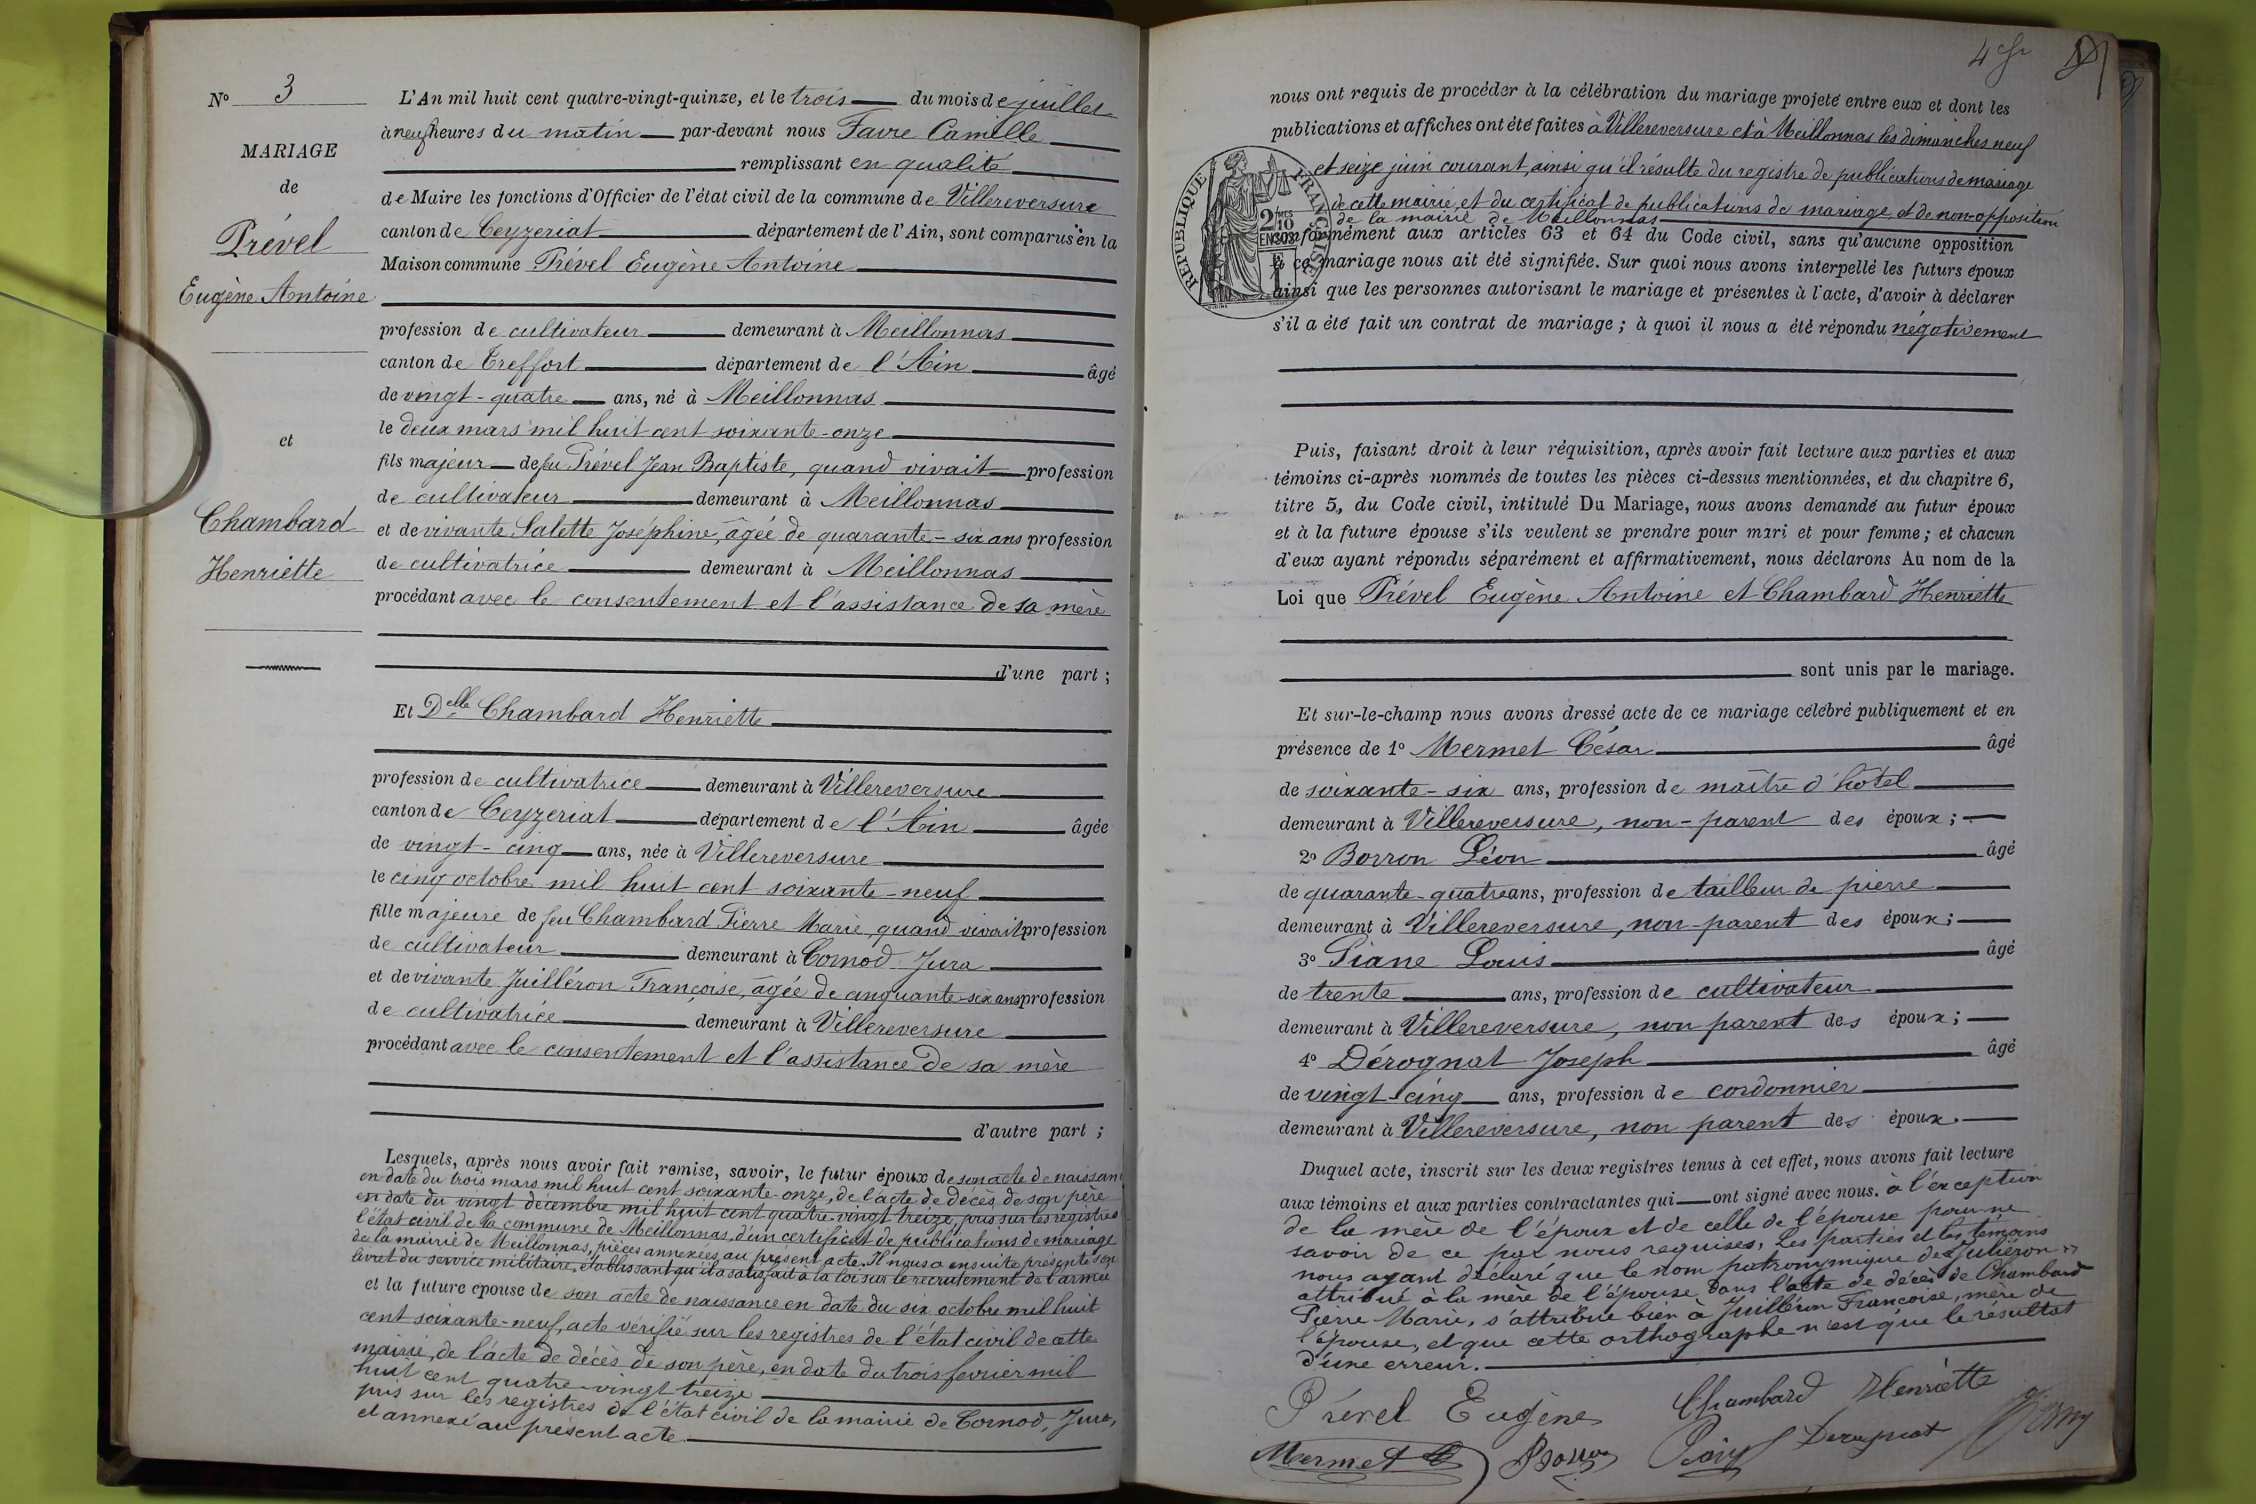 N° 3
MARIAGE
de
Prével
Eugène Antoine
et
Chambard
Henriette
L'An mil huit cent quatre-vingt-quinze, et le trois du mois de juillet
à neuf heures du matin par-devant nous Favre Camille
remplissant en qualité
de Maire les fonctions d'Officier de l'état civil de la commune de Villereversure
canton de Ceyzeriat département de l'Ain, sont comparus en la
Maison commune Prével Eugène Antoine
profession de cultivateur demeurant à Meillonnas
canton de Treffort département de l'Ain âgé
de vingt-quatre ans, né à Meillonnas
le deux mars mil huit cent soixante-onze
fils majeur de feu Prével Jean Baptiste, quand vivait profession
de cultivateur demeurant à Meillonnas
et de vivante Salette Josephine, âgée de quarante-six ans profession
de cultivatrice demeurant à Meillonnas
procédant avec le consentement et l'assistance de sa mère
d'une part ;
Et Delle Chambard Henriette
profession de cultivatrice demeurant à Villereversure
canton de Ceyzeriat département de l'Ain âgée
de vingt-cinq ans, née à Villereversure
le cinq octobre mil huit cent soixante-neuf
fille majeure de feu Chambard Pierre Marie, quand vivait profession
de cultivateur demeurant à Cornod Jura
et de vivante Juilléron Françoise, âgée de cinquante-six ans profession
de cultivatrice demeurant à Villereversure
procédant avec le consentement et l'assistance de sa mère
d'autre part ;
Lesquels, après nous avoir fait remise, savoir, le futur époux de son acte de naissan
en date du trois mars mil huit cent soixante-onze, de l'acte de décès de son père
en date du vingt décembre mil huit cent quatre-vingt treize, pris sur les registres
l'état civil de la commune de Meillonnas, d'un certificat de publications de mariage
de la mairie de Meillonnas, pièces annexées au présent acte. Il nous a ensuite présenté son
livret du service militaire, établissant qu'il a satisfait à la loi sur le recrutement de l'armée
et la future épouse de son acte de naissance en date du six octobre mil huit
cent soixante-neuf, acte vérifié sur les registres de l'état civil de cette
mairie, de l'acte de décès de son père, en date du trois fevrier mil
huit cent quatre-vingt treize
pris sur les registres de l'état civil de la mairie de Cornod, Jura,
et annexé au présent acte.
nous ont requis de procéder à la célébration du mariage projeté entre eux et dont les
publications et affiches ont été faites à Villereversure et à Meillonnas les dimanches neuf
et seize juin courant, ainsi qu'il résulte du registre de publications de mariage
de cette mairie, et du certificat de publications de mariage et de non-opposition
de la mairie de Meillonnas
RÉPUBLIQUE FRANÇAISE
2 10
EN SUS
conformément aux articles 63 et 64 du Code civil, sans qu'aucune opposition
à ce mariage nous ait été signifiée. Sur quoi nous avons interpellé les futurs époux
ainsi que les personnes autorisant le mariage et présentes à l'acte, d'avoir à déclarer
s'il a été fait un contrat de mariage ; à quoi il nous a été répondu négativement
Puis, faisant droit à leur réquisition, après avoir fait lecture aux parties et aux
témoins ci-après nommés de toutes les pièces ci-dessus mentionnées, et du chapitre 6,
titre 5, du Code civil, intitulé Du Mariage, nous avons demandé au futur époux
et à la future épouse s'ils veulent se prendre pour mari et pour femme ; et chacun
d'eux ayant répondu séparément et affirmativement, nous déclarons Au nom de la
Loi que Prével Eugène Antoine et Chambard Henriette
sont unis par le mariage.
Et sur-le-champ nous avons dressé acte de ce mariage célébré publiquement et en
présence de 1° Mermet César âgé
de soixante-six ans, profession de maître d'hôtel
demeurant à Villereversure, non-parent des époux ;
2° Borron Léon âgé
de quarante-quatre ans, profession de tailleur de pierre
demeurant à Villereversure, non-parent des époux ;
3° Piane Louis âgé
de trente ans, profession de cultivateur
demeurant à Villereversure, non parent des époux ;
4° Dérognat Joseph âgé
de vingt-cinq ans, profession de cordonnier
demeurant à Villereversure, non parent des époux.
Duquel acte, inscrit sur les deux registres tenus à cet effet, nous avons fait lecture
aux témoins et aux parties contractantes qui ont signé avec nous. à l'exception
de la mère de l'époux et de celle de l'épouse pour ne
savoir de ce par nous requises. Les parties et les témoins
nous ayant déclaré que le nom patronymique de "Juliéron"
attribué à la mère de l'épouse dans l'acte de décès de Chambard
Pierre Marie, s'attribue bien à Juilléron Françoise, mère de
l'épouse, et que cette orthographe n'est que le résultat
d'une erreur.
Prével Eugène Chambard Henriette
Mermet Borron Derognat